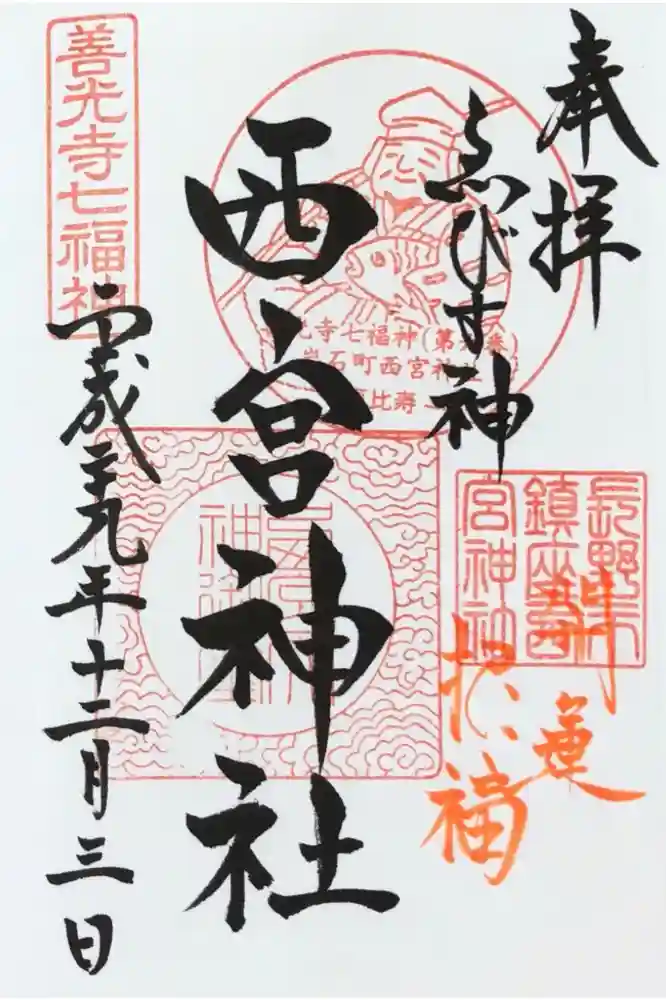 奉拝
ゑびす神
西宮神社
平成二十九年十二月三日
善光寺七福神
光寺七福神(第
岩石町西宮神社
比寿
長野市
鎮座西
宮神社
開運
招福